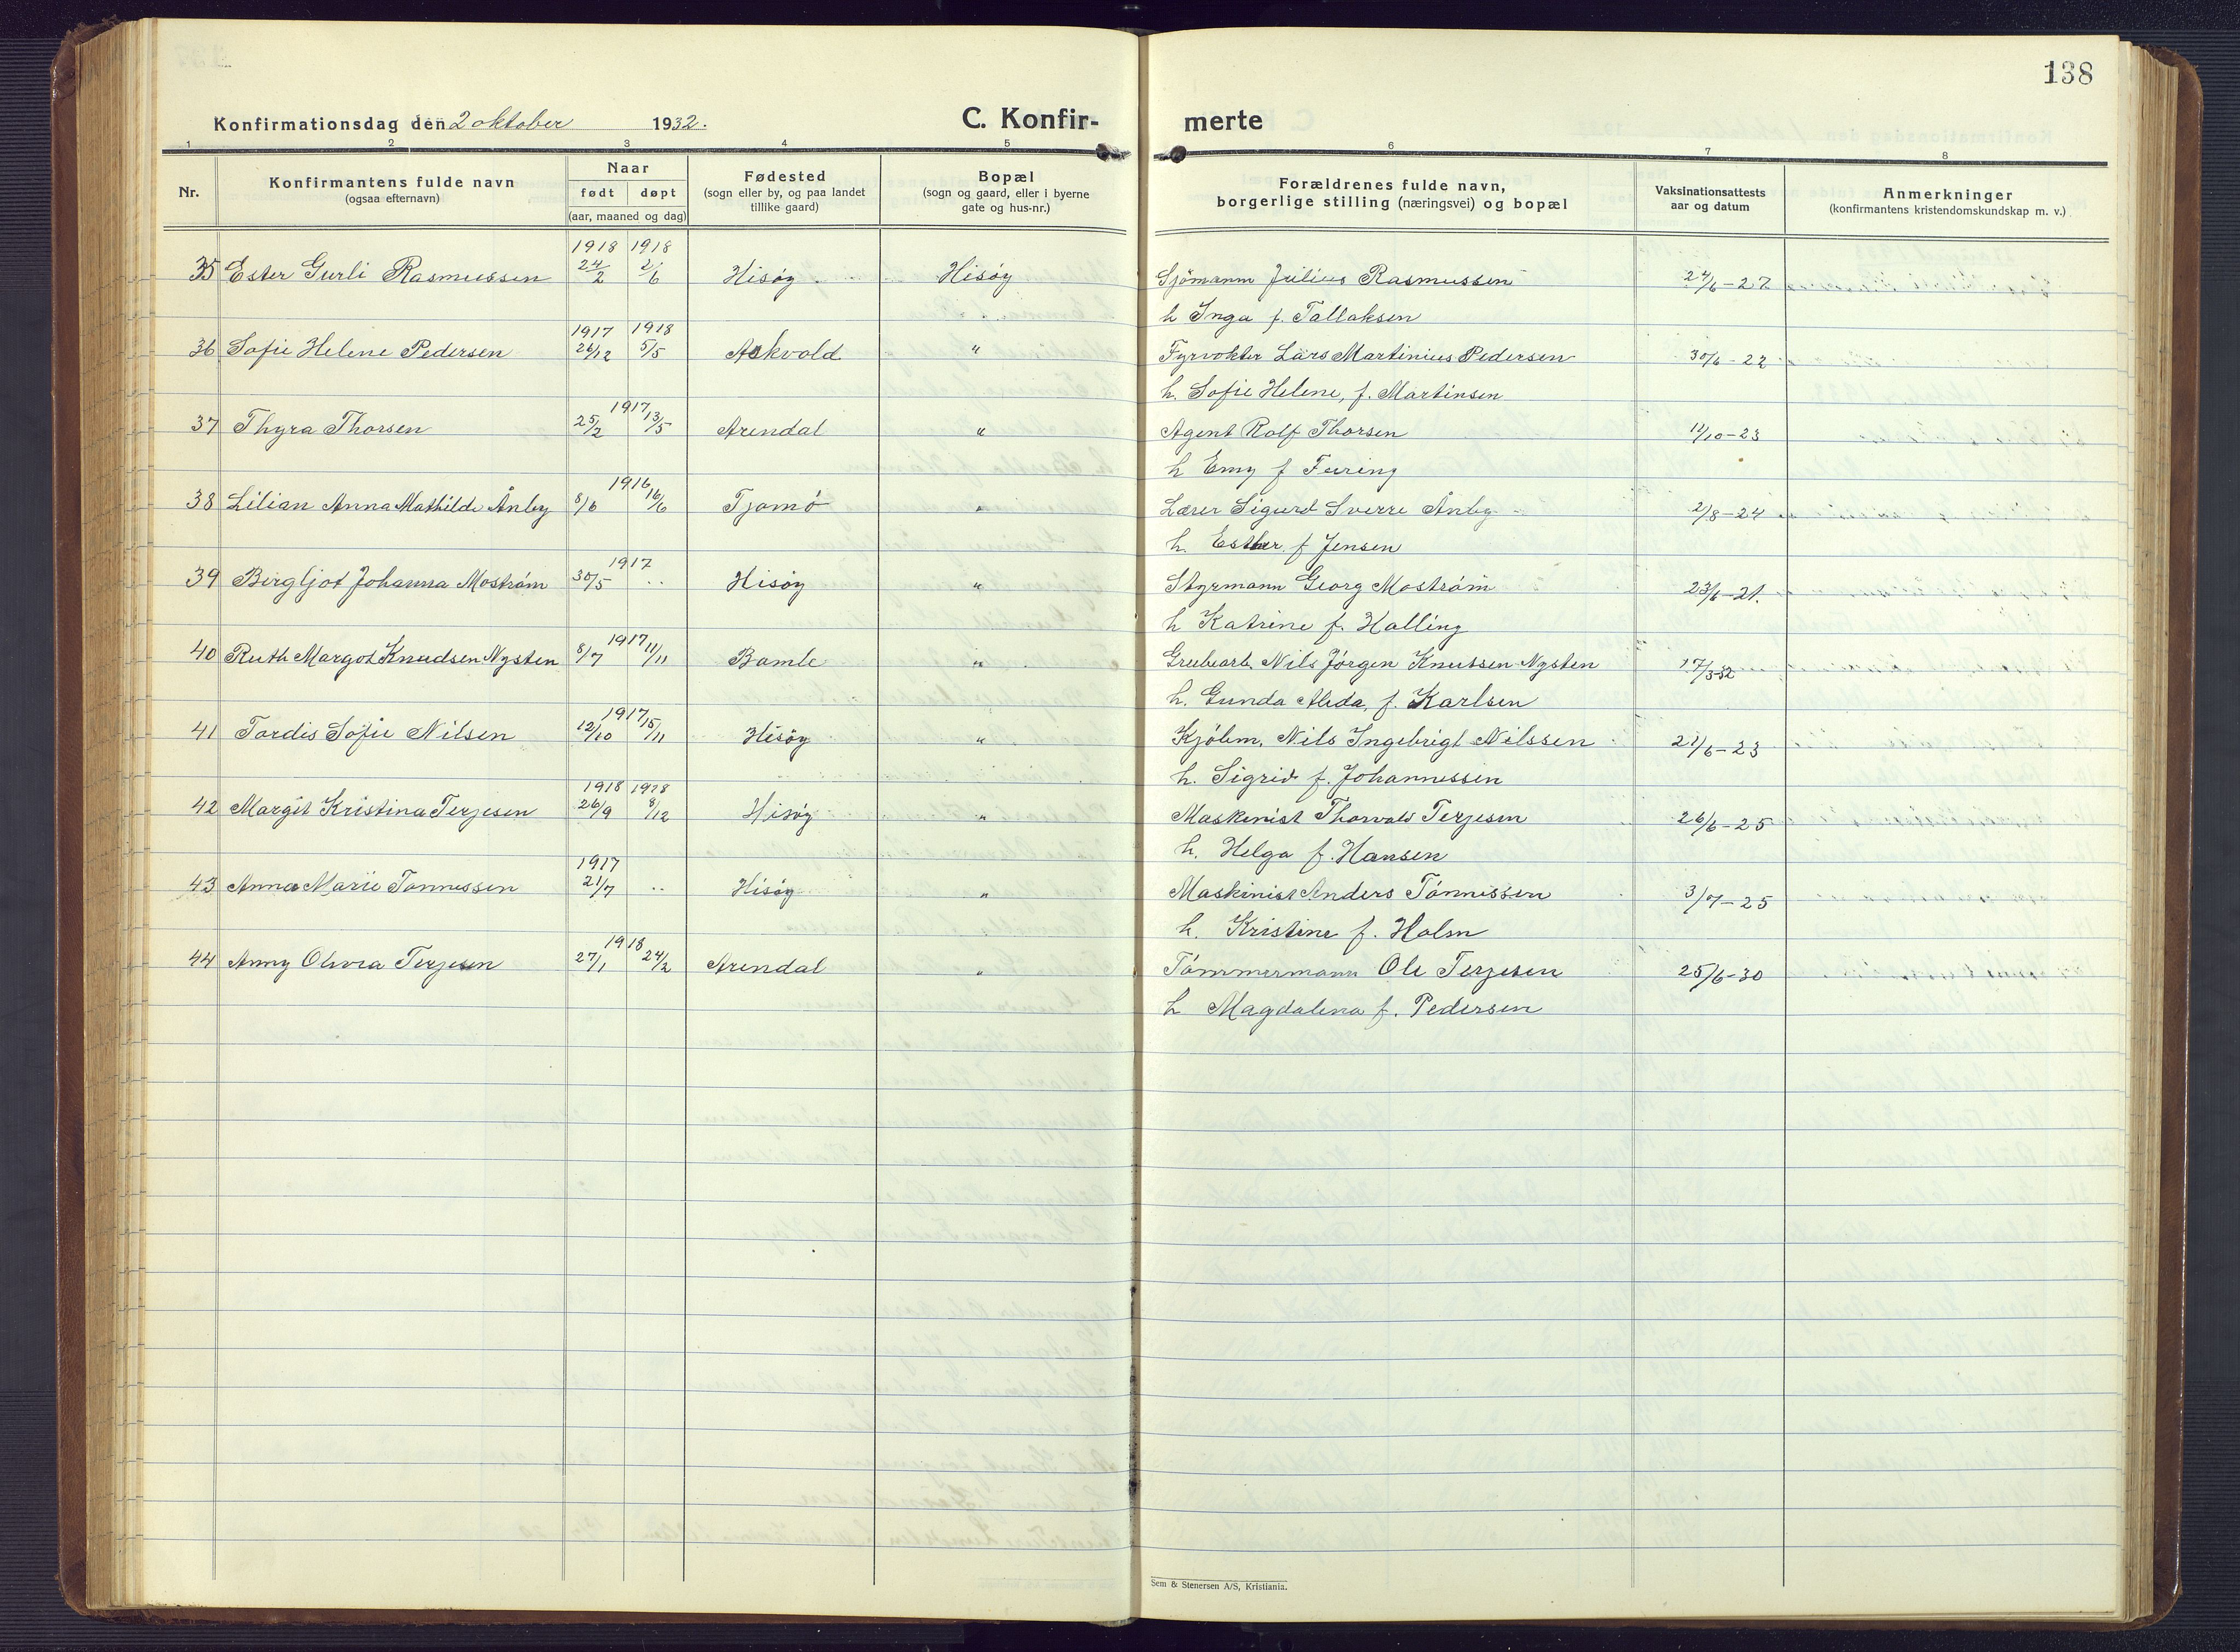 138
Konfirmationsdag den 2 oktober 1932. C. Konfir- merte
1 2 3 4 5 6 7 8
Nr. Konfirmantens fulde navn (ogsaa efternavn) Naar født døpt (aar, maaned og dag) Fødested (sogn eller by, og paa landet tillike gaard) Bopæl (sogn og gaard, eller i byerne gate og hus-nr.) Forældrenes fulde navn, borgerlige stilling (næringsvei) og bopæl Vaksinationsattests aar og datum Anmerkninger (konfirmantens kristendomskundskap m. v.)
1918 1918
35 Ester Gurli Rasmussen 24/2 2/6 Hisøy Hisøy Sjömann Julius Rasmussen 24/6-27
h Inga f. Tallaksen
1917 1918
36 Sofie Helene Pedersen 26/12 5/5 Askvold " Fyrvokter Lars Martinius Pedersen 30/6-22
h. Sofie Helene, f. Martinsen
1917
37 Thyra Thorsen 25/2 13/5 Arendal " Agent Rolf Thorsen 12/10-23
h Emy f Furing
1916
38 Lilian Anna Mathilde Ånby 8/6 16/6 Tjømö " Lærer Sigurd Sverre Ånby 2/8-24
h. Esther f Jensen
1917
39 Bergljot Johanna Moström 30/5 .. Hisöy " Styrmann Georg Moström 23/6-21.
h Katrine f. Halling
1917
40 Ruth Margot Knudsen Nysten 8/7 11/11 Bamle " Grubearb. Nils Jörgen Knutsen Nysten 17/3-32
h. Gunda Alida, f. Karlsen
1917
41 Tordis Sofie Nilsen 12/10 15/11 Hisöy " Kjölem, Nils Ingebrigt Nilssen 21/6-23
h. Sigrid f. Johannessen
1918 1918
42 Margit Kristina Terjesen 26/9 8/12 Hisöy " Maskinist Thorvald Terjesen 26/6-25
h. Helga f. Hansen
1917
43 Anna Marie Tönnessen 21/7 .. Hisöy " Maskinist Anders Tönnessen 3/7-25
h. Kristine f. Holm
1918
44 Anny Olivia Terjesen 27/1 24/2 Arendal " Tömmermann Ole Terjesen 25/6-30
h Magdalena f. Pedersen
Sem & Stenersen A/S, Kristiania.